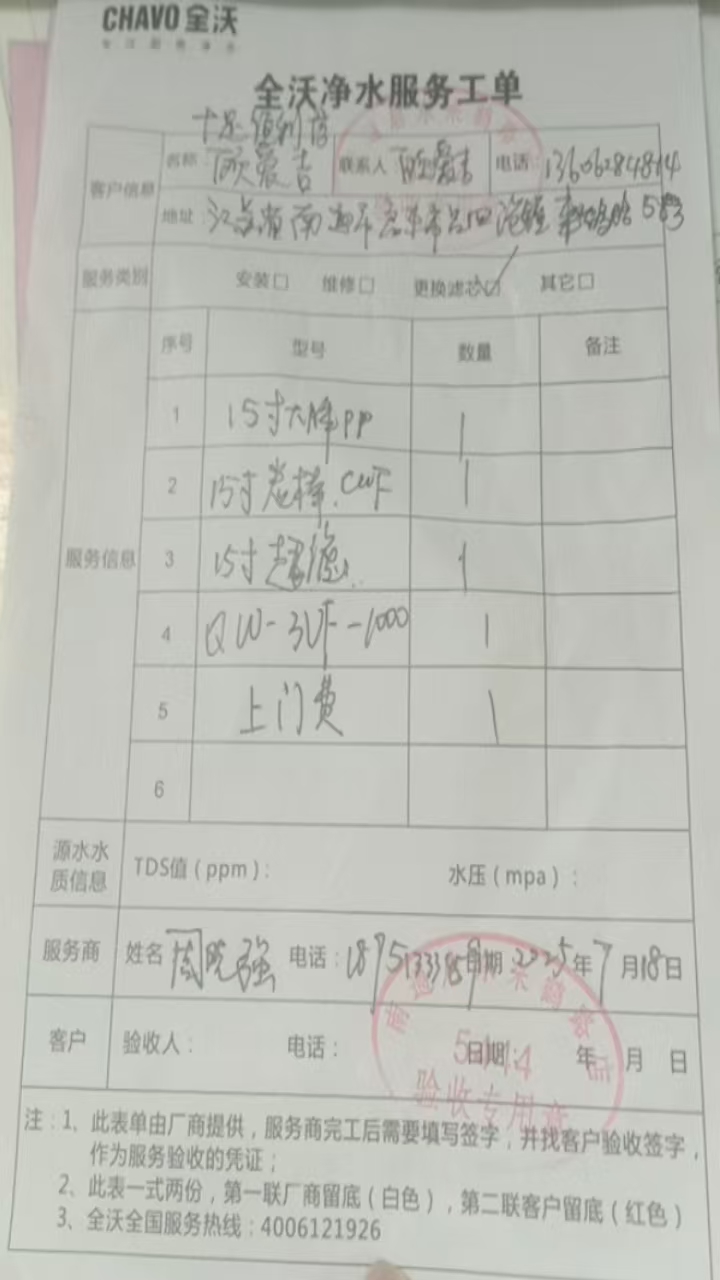 CHAVO 全沃
全沃净水服务工单
客户信息
名称: 联系人 电话: 13606284814
地址 江苏省南通市启东市吕四港镇 583
服务类别 安装□ 维修□ 更换滤芯☑ 其它□
服务信息
序号 型号 数量 备注
1 15寸大胖PP 1
2 15寸 CWF 1
3 15寸超滤 1
4 QW-3UF-1000 1
5 上门费 1
6
源水水质信息 TDS值(ppm): 水压(mpa):
服务商 姓名 周晓强 电话: 日期 2025年7月18日
客户 验收人: 电话: 日期: 年 月 日
5114
验收专用章
注:1、此表单由厂商提供,服务商完工后需要填写签字,并找客户验收签字,
作为服务验收的凭证;
2、此表一式两份,第一联厂商留底(白色),第二联客户留底(红色)
3、全沃全国服务热线:4006121926